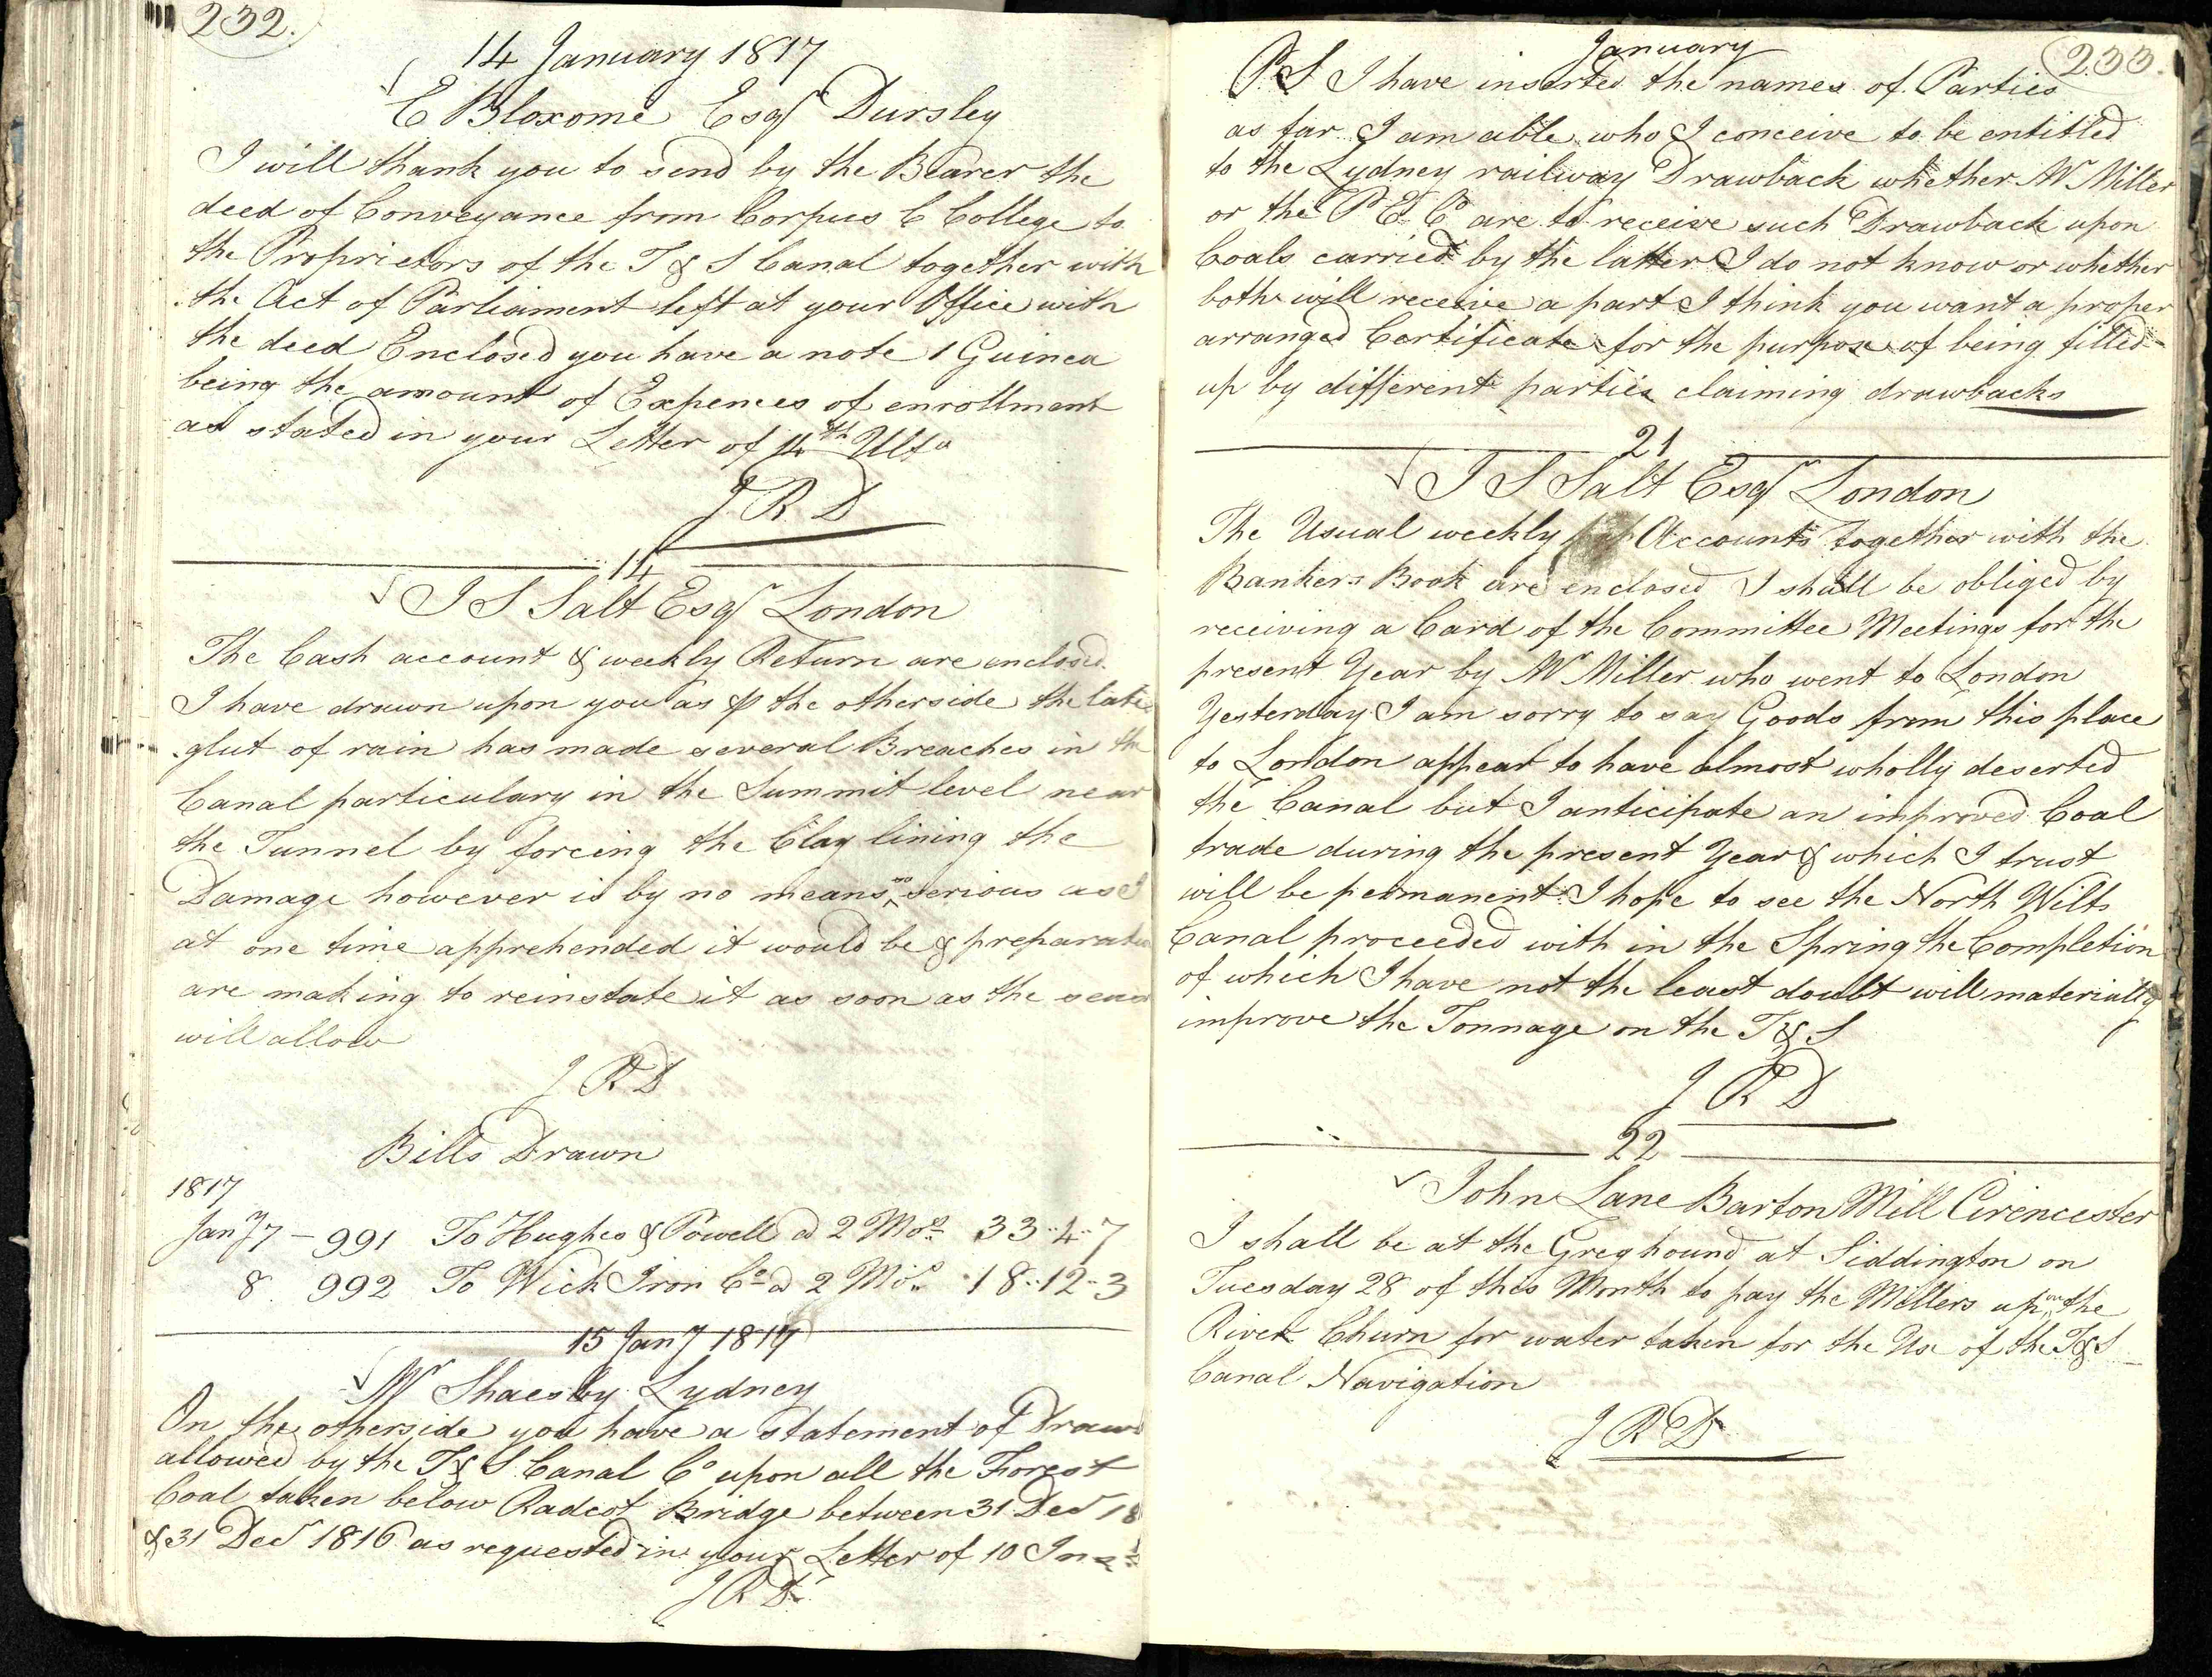 232.
14 January 1817
E Bloxome Esqr Dursley
I will thank you to send by the Bearer the
deed of Conveyance from Corpus C College to
the Proprietors of the T & S Canal together with
the Act of Parliament left at your Office with
the deed Enclosed you have a note 1 Guinea
being the amount of Expences of enrollment
as stated in your Letter of 14th Ulto
J R D
14
I S Salt Esqr London
The Cash account & weekly Return are enclosed
I have drawn upon you as p the otherside the late
glut of rain has made several Breaches in the
Canal particulary in the Summit level near
the Tunnel by forcing the Clay lining the
Damage however is by no means so serious as I
at one time apprehended it would be & preparati
are making to reinstate it as soon as the seas
will allow
J R D
Bills Drawn
1817
Jany 7 - 991 To Hughes & Powell a 2 Mos 33..4..7
8 992 To Wick Iron Co a 2 Mos 18..12..3
15 Jany 1817
Mr Lydney
On the otherside you have a statement of Draw
allowed by the T & S Canal Co upon all the Forest
Coal taken below Radcot Bridge between 31 Decr 18
& 31 Decr 1816 as requested in your Letter of 10 Inst
J R D
January
233.
P.S I have inserted the names of Parties
as far I am able who I conceive to be entitled
to the Lydney railway Drawback whether Mr Miller
or the P E Co are to receive such Drawback upon
Coals carried by the latter I do not know or whether
both will receive a part I think you want a proper
arranged Certificate for the purpose of being filled
up by different parties claiming drawbacks
21
I S Salt Esqr London
The Usual weekly Accounts together with the
Bankers Book are enclosed I shall be obliged by
receiving a Card of the Committee Meetings for the
present Year by Mr Miller who went to London
Yesterday I am sorry to say Goods from this place
to London appear to have almost wholly deserted
the Canal but I anticipate an improved Coal
trade during the present Year & which I trust
will be permanent I hope to see the North Wilts
Canal proceeded with in the Spring the Completion
of which I have not the least doubt will materially
improve the Tonnage on the T & S
J R D
22
John Lane Barton Mill Cirencester
I shall be at the Greyhound at Siddington on
Tuesday 28 of this Month to pay the Millers upon the
River Churn for water taken for the Use of the T & S
Canal Navigation
J R D